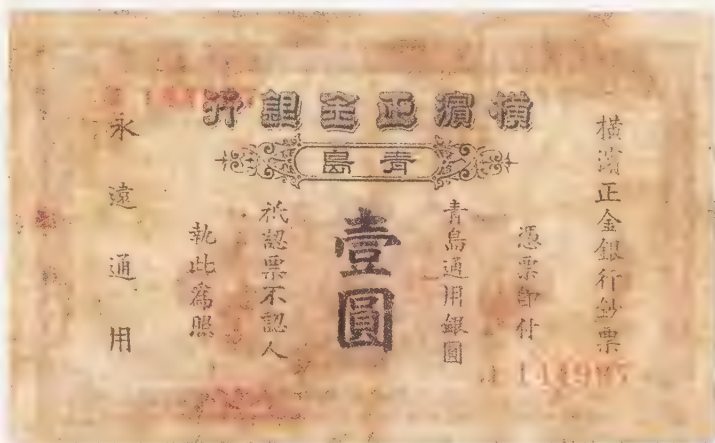 橫濱正金銀行
青島
橫濱正金銀行鈔票
憑票即付
青島通用銀圓
壹圓
祇認票不認人
執此爲照
永遠通用